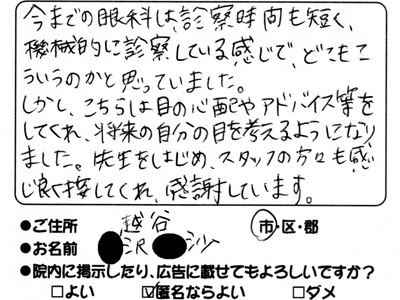 今までの眼科は、診察時間も短く、
機械的に診察している感じで、どこもこ
ういうのかと思っていました。
しかし、こちらは目の心配やアドバイス等を
してくれ、将来の自分の目を考えるようになり
ました。先生をはじめ、スタッフの方々も感
じ良く接してくれ、感謝しています。
●ご住所 越谷 市・区・郡
●お名前 沢
●院内に掲示したり、広告に載せてもよろしいですか?
□よい ☑匿名ならよい □ダメ